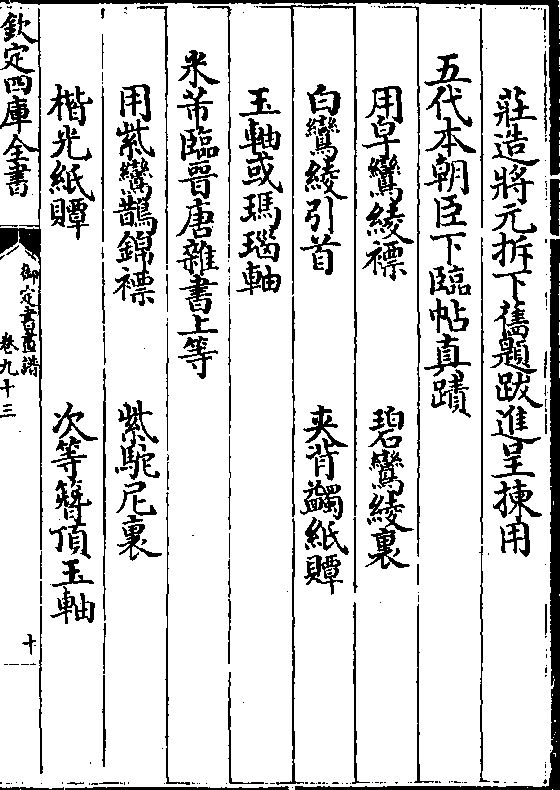 莊造將元拆下舊題跋進呈揀用
五代本朝臣下臨帖真蹟
用皁鸞綾褾 碧鸞綾裏
白鸞綾引首 夾背蠲紙贉
玉軸或瑪瑙軸
米芾臨晉唐雜書上等
用紫鸞鵲錦褾 紫駝尼裏
楷光紙贉 次等簪頂玉軸
欽定四庫全書
御定書畫譜
卷九十三
十